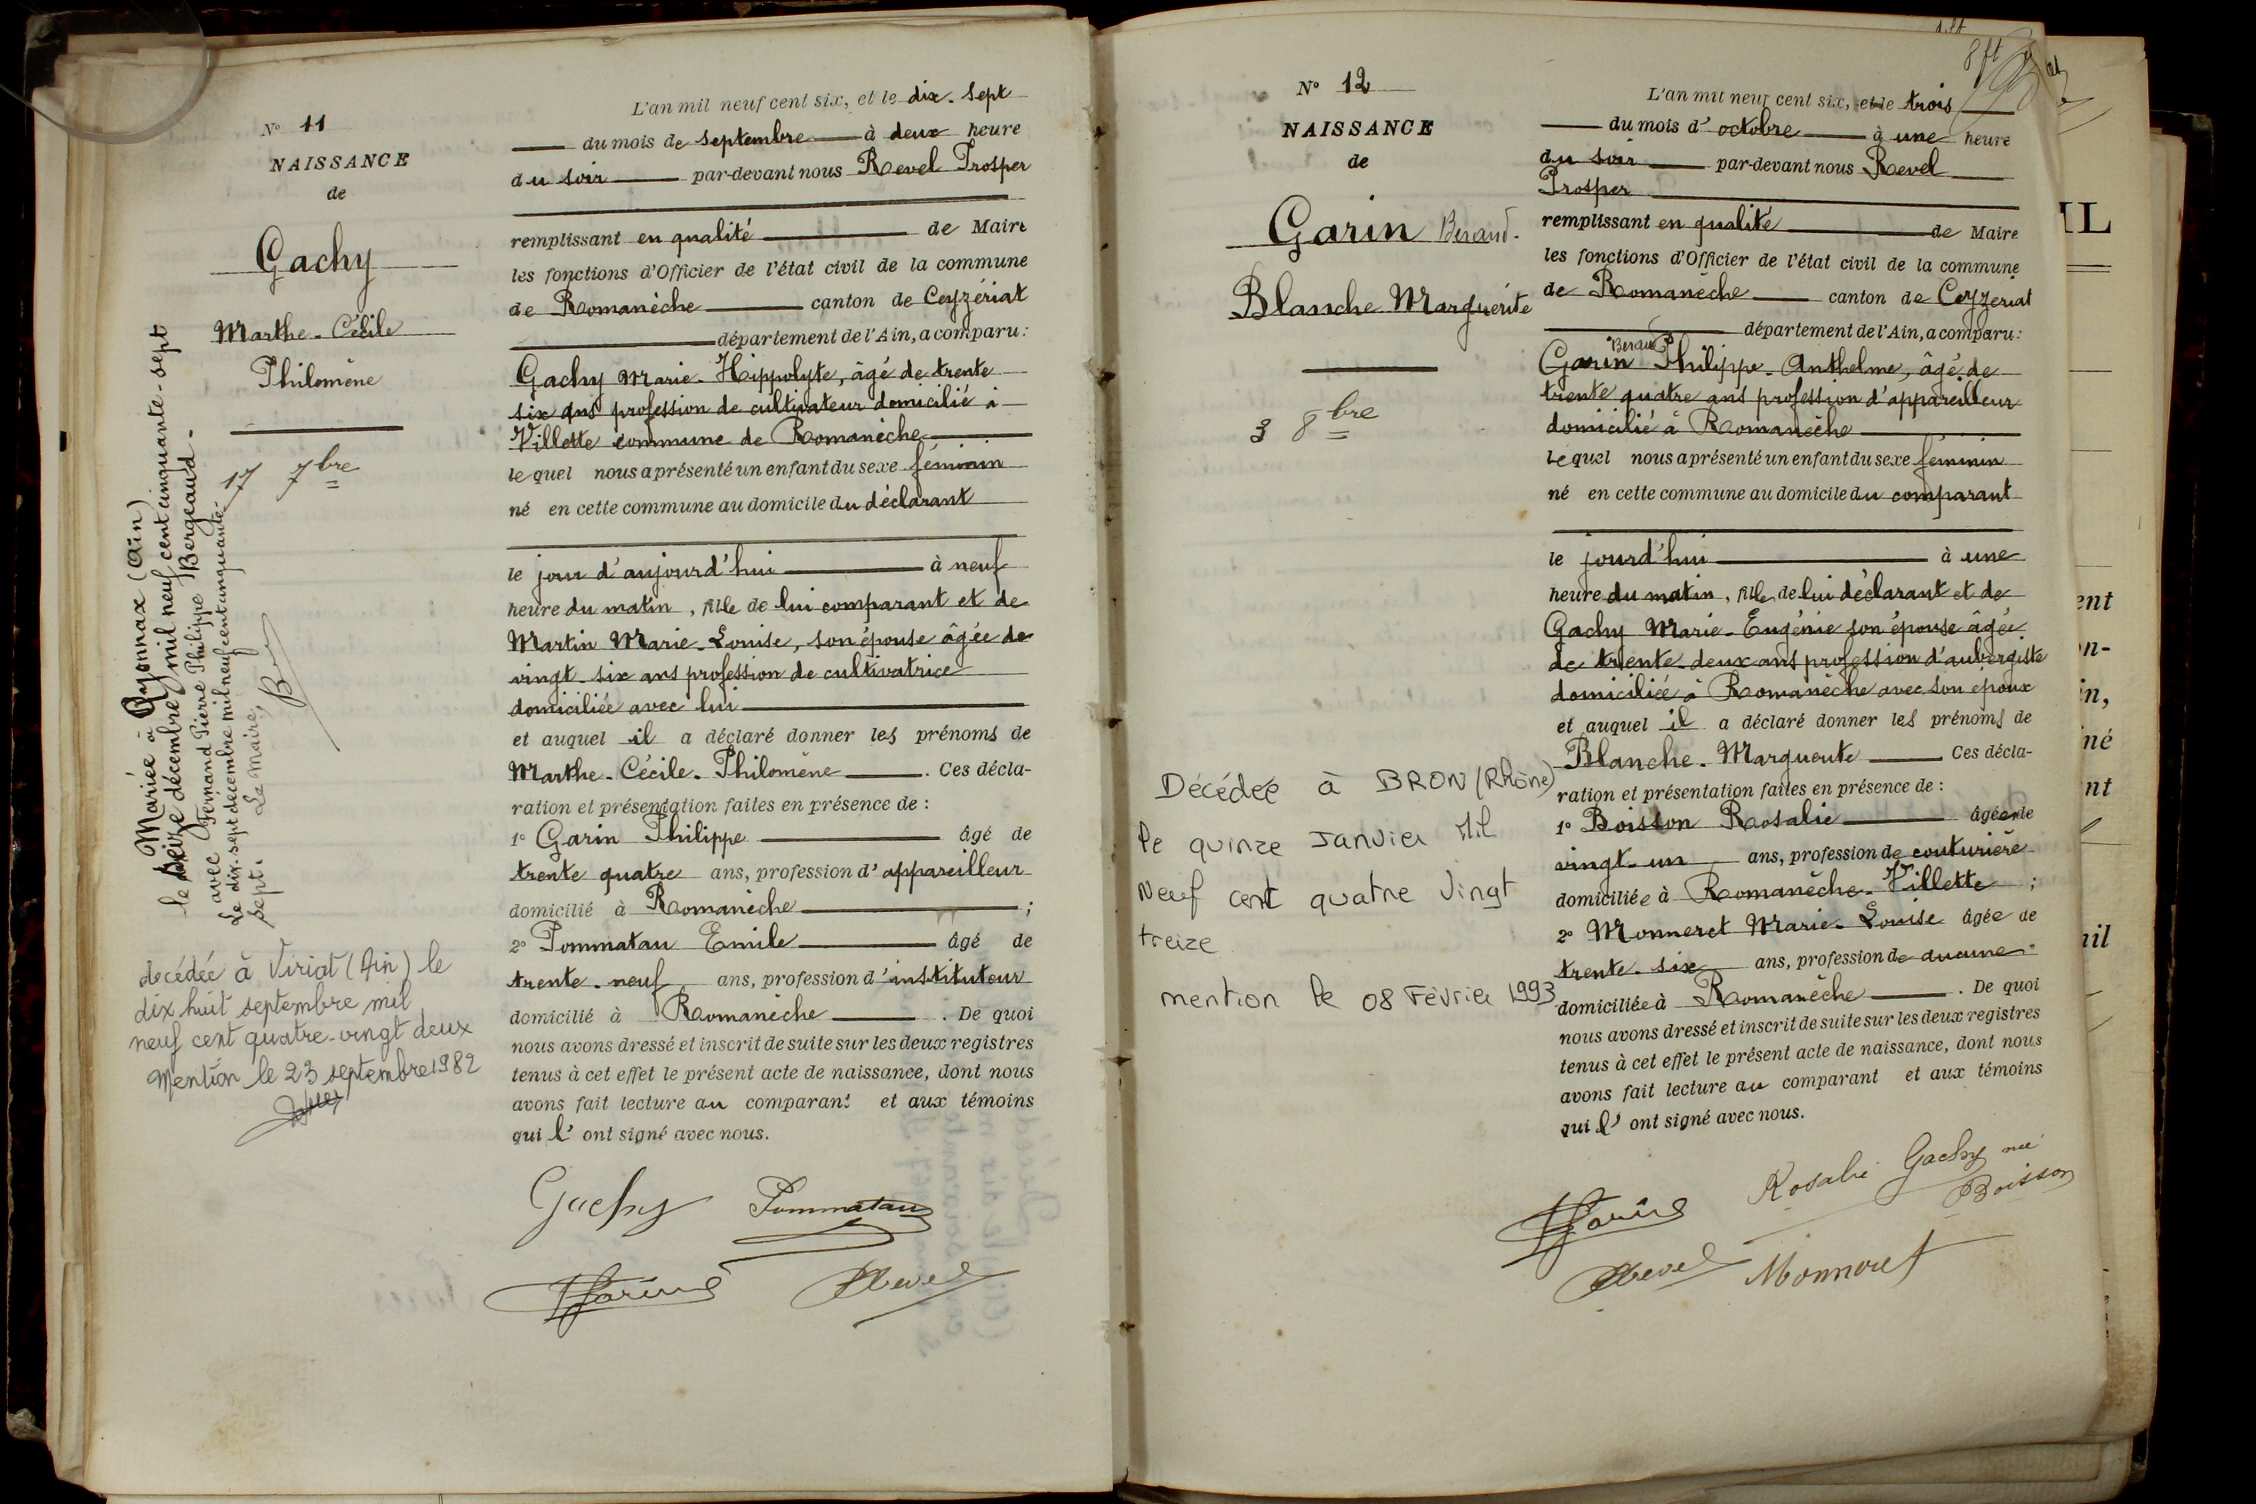 N° 11
NAISSANCE
de
Gachy
Marthe-Cécile
Philomène
17 7bre
Mariée à Oyonnax (Ain)
le seize décembre mil neuf cent cinquante-sept
avec Fernand Pierre Philippe Bergeaud.
Le dix-sept décembre mil neuf cent cinquante-
sept. Le Maire,
décédée à Viriat (Ain) le
dix huit septembre mil
neuf cent quatre-vingt deux
Mention le 23 septembre 1982
L'an mil neuf cent six, et le dix-sept
du mois de septembre à deux heure
du soir par-devant nous Revel Prosper
remplissant en qualité de Maire
les fonctions d'Officier de l'état civil de la commune
de Romanèche canton de Ceyzériat
département de l'Ain, a comparu :
Gachy Marie-Hippolyte, âgé de trente
six ans profession de cultivateur domicilié à
Villette commune de Romanèche
lequel nous a présenté un enfant du sexe féminin
né en cette commune au domicile du déclarant
le jour d'aujourd'hui à neuf
heure du matin, fille de lui comparant et de
Martin Marie-Louise, son épouse âgée de
vingt-six ans profession de cultivatrice
domiciliée avec lui
et auquel il a déclaré donner les prénoms de
Marthe-Cécile-Philomène. Ces décla-
ration et présentation faites en présence de :
1° Garin Philippe âgé de
trente quatre ans, profession d'appareilleur
domicilié à Romanèche ;
2° Pommatau Emile âgé de
trente-neuf ans, profession d'instituteur
domicilié à Romanèche. De quoi
nous avons dressé et inscrit de suite sur les deux registres
tenus à cet effet le présent acte de naissance, dont nous
avons fait lecture au comparant et aux témoins
qui l'ont signé avec nous.
Gachy Pommatau
Garin Revel
N° 12
NAISSANCE
de
Garin Beraud.
Blanche Marguerite
3 8bre
Décédée à BRON (Rhône)
le quinze Janvier Mil
Neuf cent quatre vingt
treize
mention le 08 Février 1993
L'an mil neuf cent six, et le trois
du mois d'octobre à une heure
du soir par-devant nous Revel
Prosper
remplissant en qualité de Maire
les fonctions d'Officier de l'état civil de la commune
de Romanèche canton de Ceyzériat
département de l'Ain, a comparu :
Beraud
Garin Philippe-Anthelme, âgé de
trente quatre ans profession d'appareilleur
domicilié à Romanèche
lequel nous a présenté un enfant du sexe féminin
né en cette commune au domicile du comparant
le jourd'hui à une
heure du matin, fille de lui déclarant et de
Gachy Marie-Eugénie son épouse âgée
de trente-deux ans profession d'aubergiste
domiciliée à Romanèche avec son époux
et auquel il a déclaré donner les prénoms de
Blanche-Marguerite Ces décla-
ration et présentation faites en présence de :
1° Boisson Rosalie âgée de
vingt-un ans, profession de couturière
domiciliée à Romanèche-Villette ;
2° Monneret Marie-Louise âgée de
trente-six ans, profession de aucune
domiciliée à Romanèche. De quoi
nous avons dressé et inscrit de suite sur les deux registres
tenus à cet effet le présent acte de naissance, dont nous
avons fait lecture au comparant et aux témoins
qui l'ont signé avec nous.
Garin Rosalie Gachy née
Boisson
Revel Monneret
IL
ent
on-
in,
iné
nt
nil